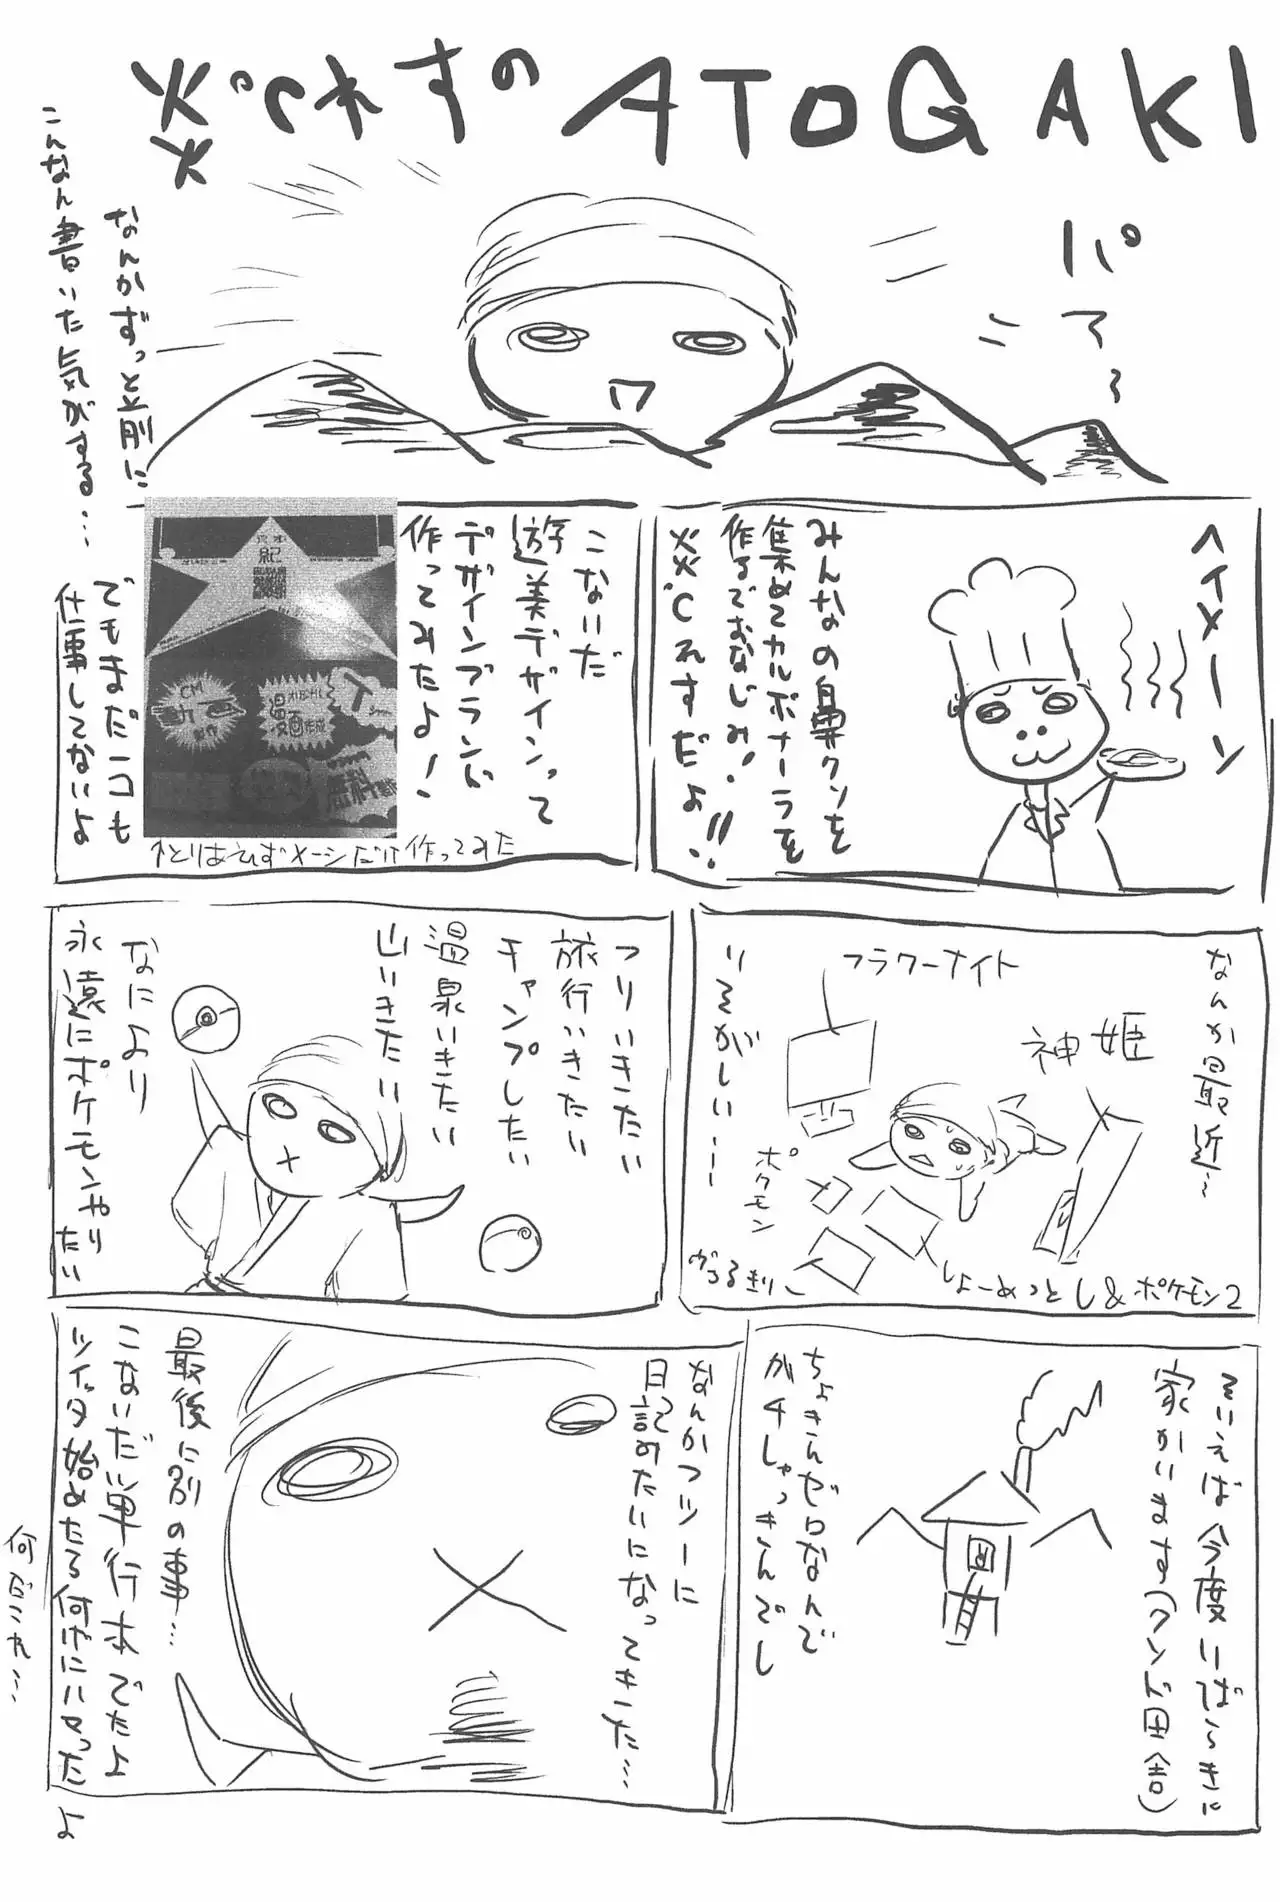 炎℃れすのATOGAKI
パァ〜
なんかずっと前に
こんなん書いた気がする…
ヘイメーン
みんなの鼻クソを
集めてカルボナーラを
作るでおなじみ!
炎℃れすだよ!!
こないだ
遊美デザインって
デザインブランド
作ってみたよ!
CM
漫画作成
↑とりあえずメーシだけ作ってみた
でもまだニコも
仕事してないよ
なんか最近〜
フラワーナイト
神姫
ポケモン
しょーめっとし&ポケモン2
ヴァるきりー
いそがしいーー
つりいきたい
旅行いきたい
キャンプしたい
温泉いきたい
山いきたい
なにより
永遠にポケモンやり
たい
そいえば今度いばらきに
家かいます(クンド田舎)
ちょきんゼロなんで
ガチしゃっきんでし
なんかフツーに
日記みたいになってきた…
最後に別の事…
こないだ単行本でたよ
ツイッタ始めたら何げにハマったよ
何だこれ…